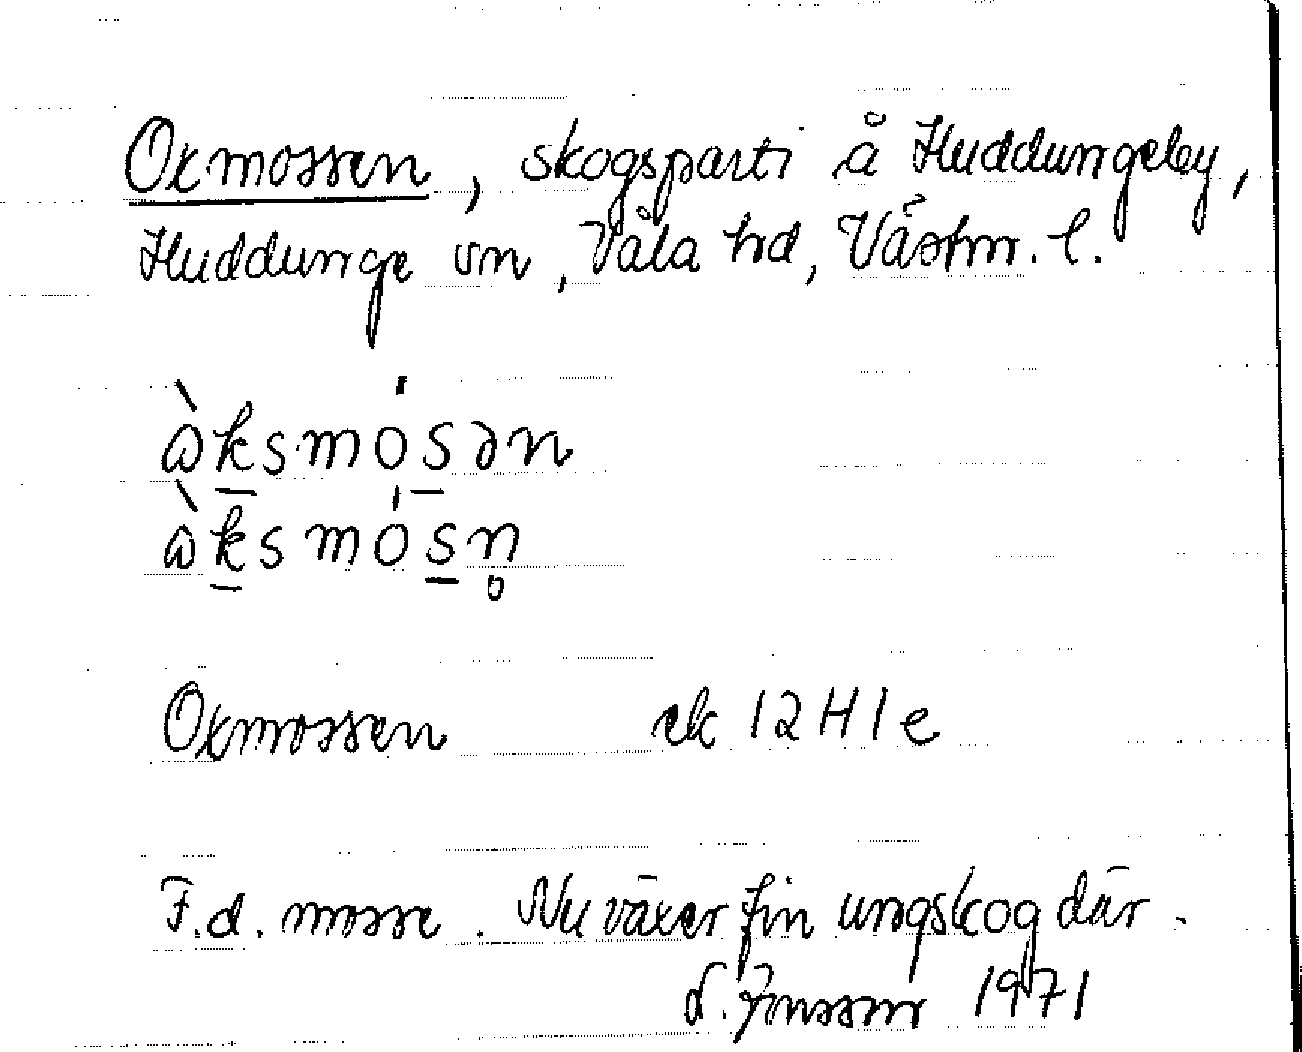 Oxmossen, skogsparti å Huddungeby,
Huddunge sn, Våla hd, Västm. l.
ὰksmósən
ὰksmósn̥
Oxmossen ek 12H1e
F.d. mosse. Nu växer fin ungskog där.
L. Jonsson 1971